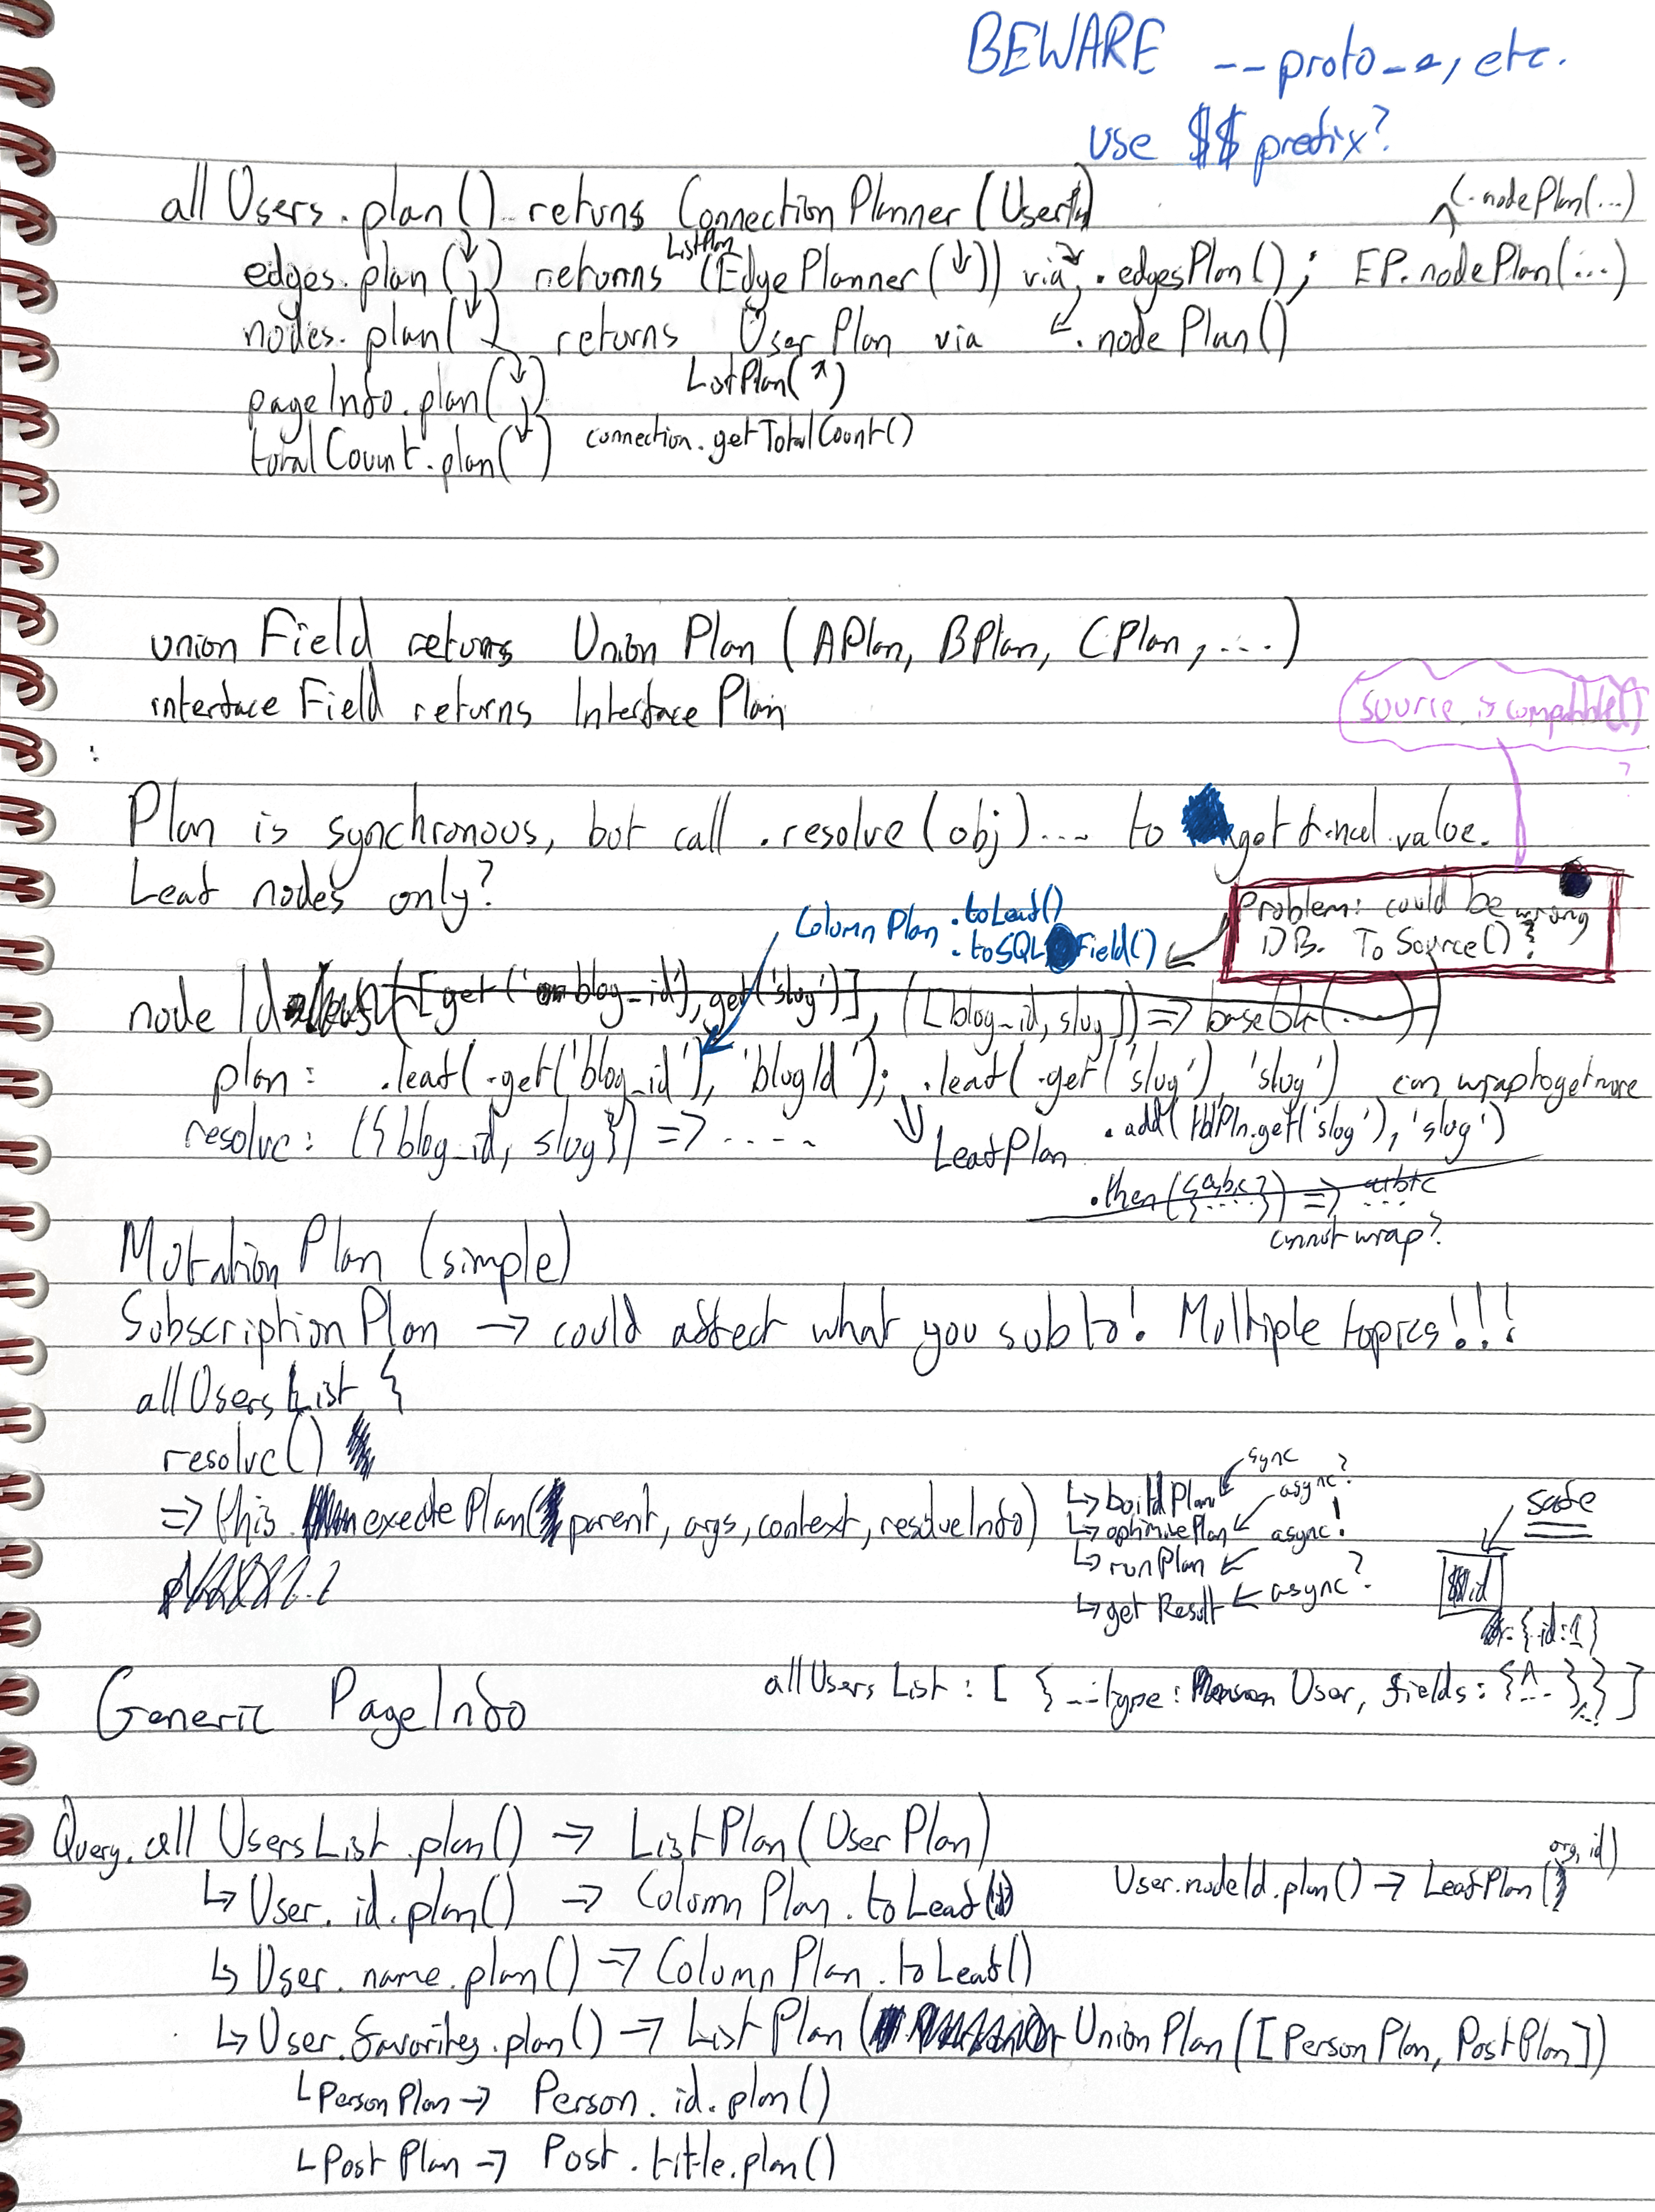 BEWARE __proto__, etc.
use $$ prefix?
allUsers.plan() returns ConnectionPlanner(User)
(.nodePlan(...)
edges.plan(↓) returns ListPlan(EdgePlanner(↓)) via .edgesPlan(); EP.nodePlan(...)
nodes.plan(↓) returns UserPlan via .nodePlan()
ListPlan(↗)
pageInfo.plan(↓)
totalCount.plan(↓) connection.getTotalCount()
unionField returns UnionPlan (APlan, BPlan, CPlan, ...)
interfaceField returns InterfacePlan
source.isCompatible()
?
Plan is synchronous, but call .resolve(obj)... to get final value.
Leaf nodes only?
ColumnPlan .toLeaf()
.toSQLField()
Problem: could be wrong
DB. ToSource()?
nodeId ([get('blog_id'), get('slug')], ([blog_id, slug]) => base64(....))
plan: .leaf(.get('blog_id'), 'blogId'); .leaf(.get('slug'), 'slug') can wrap to get more
resolve: ({blog_id, slug}) => .....
↓ LeafPlan .add(tblPln.get('slug'), 'slug')
.then({a,b,c}) => a+b+c
cannot wrap?
MutationPlan (simple)
SubscriptionPlan → could affect what you sub to! Multiple topics!!!
allUsersList {
resolve()
=> this.executePlan(parent, args, context, resolveInfo)
↳ buildPlan ← sync
↳ optimisePlan ← async?
↳ runPlan ← async!
↳ getResult ← async?
safe
$$id
= {id:1}
Generic PageInfo
allUsersList: [ { __type: User, fields: {...} } ]
Query.allUsersList.plan() → ListPlan(UserPlan)
↳ User.id.plan() → ColumnPlan.toLeaf()
User.nodeId.plan() → LeafPlan(org, id)
↳ User.name.plan() → ColumnPlan.toLeaf()
↳ User.favorites.plan() → ListPlan(UnionPlan([PersonPlan, PostPlan])
↳ PersonPlan → Person.id.plan()
↳ PostPlan → Post.title.plan()